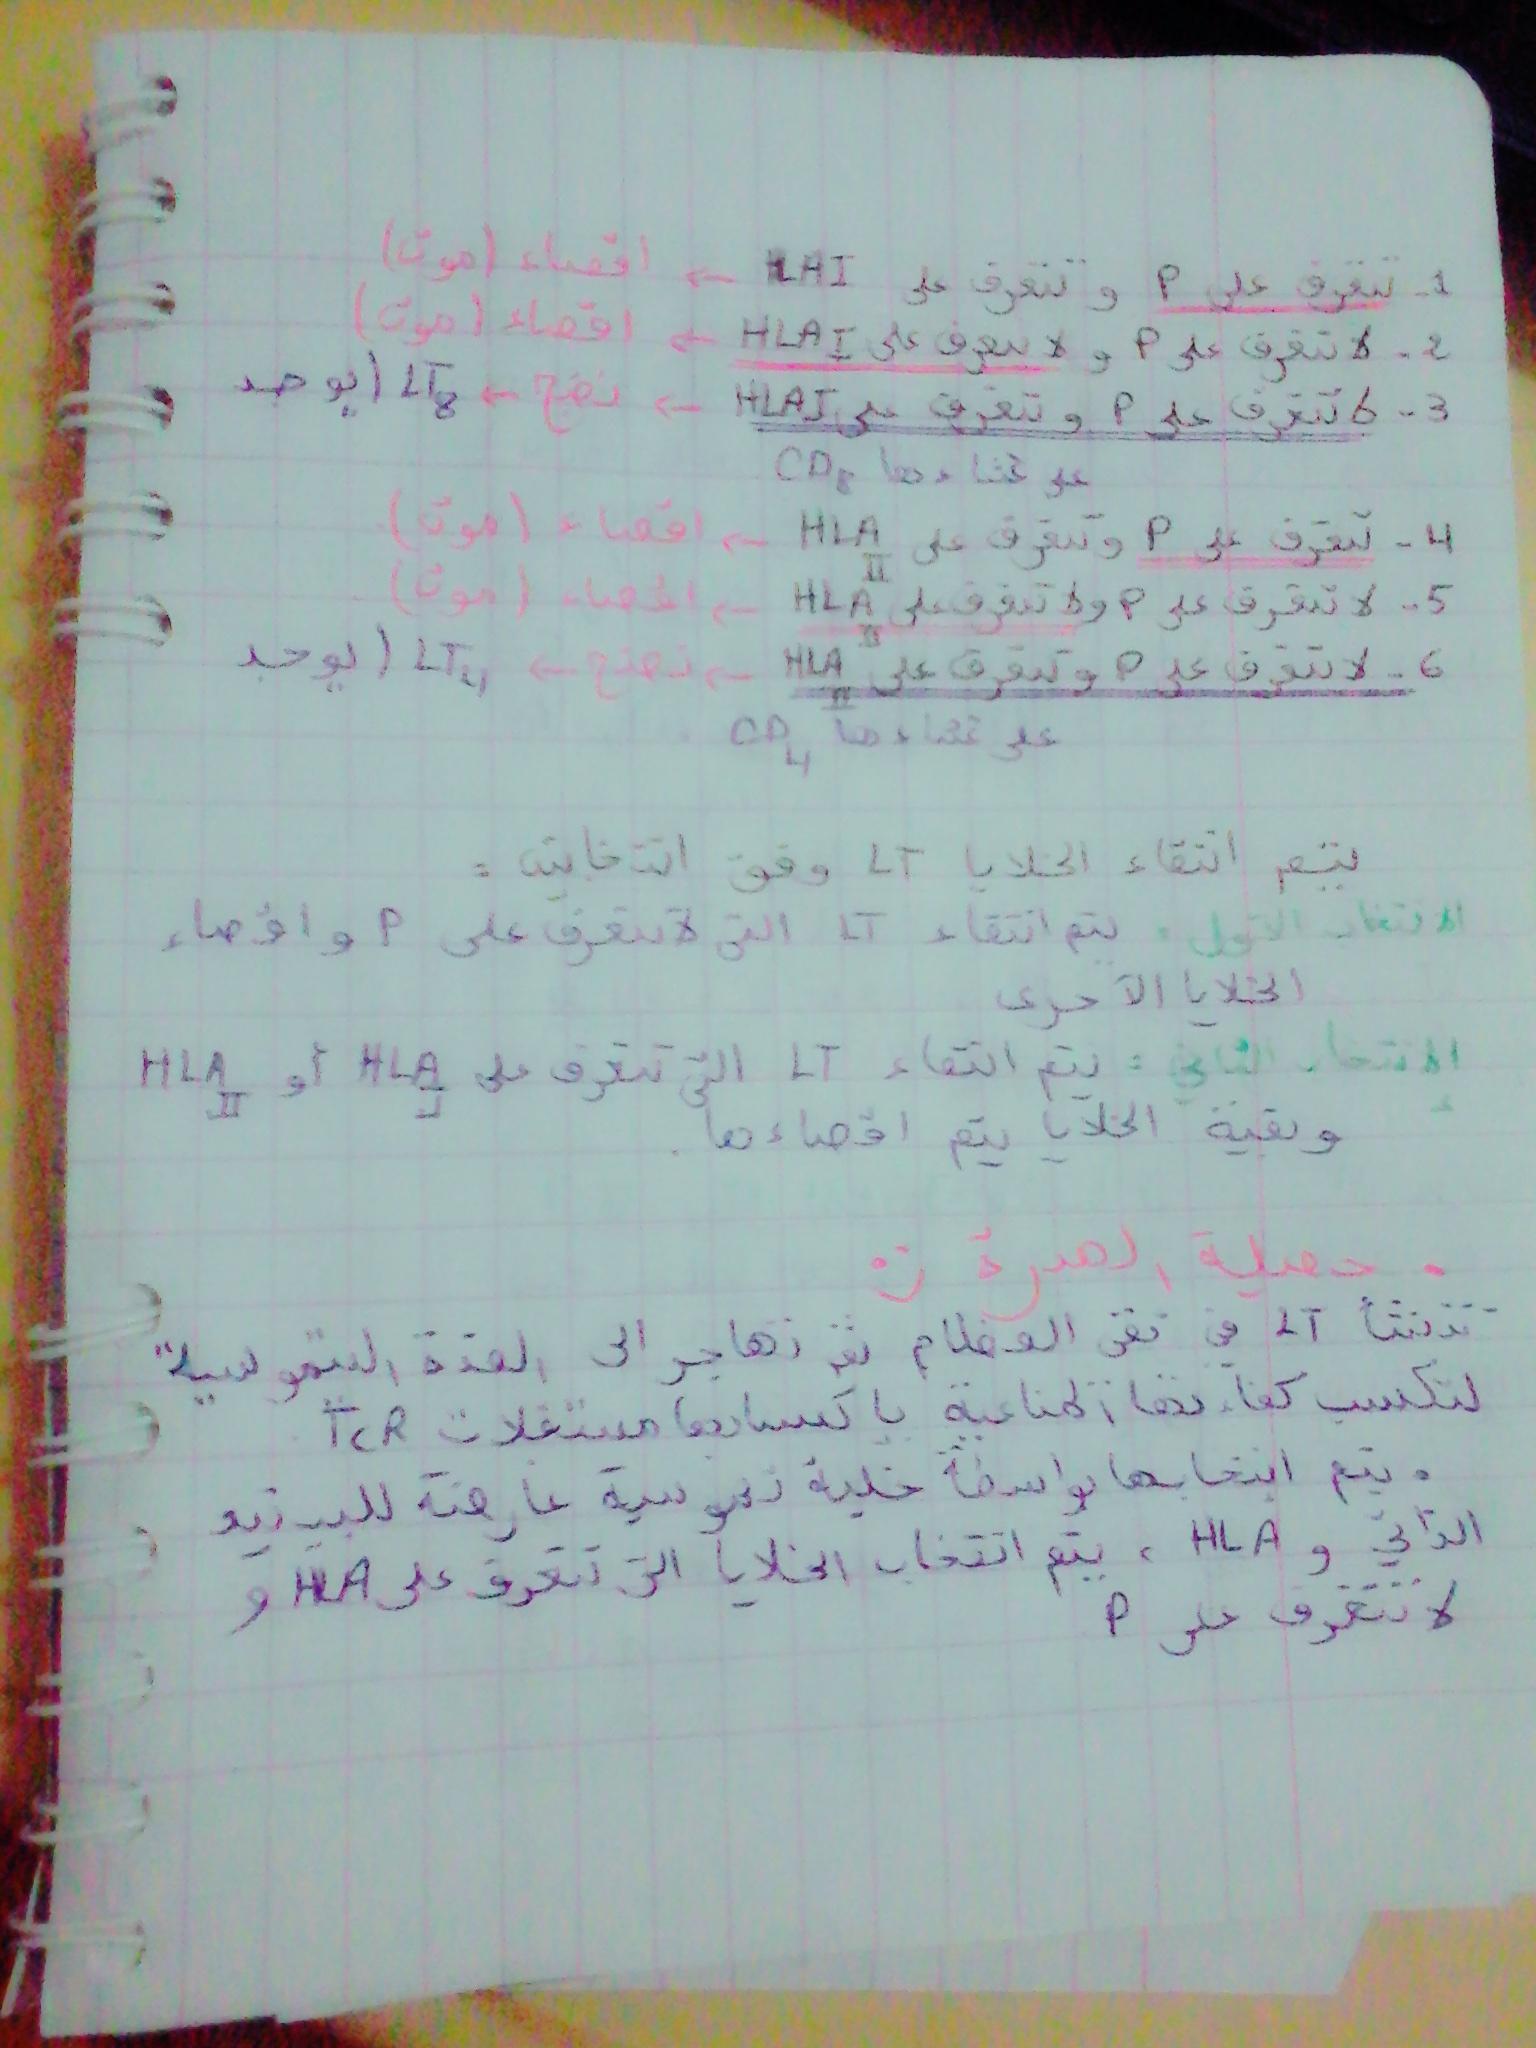 1- تتعرف على P و تتعرف على HLAI ← اقصاء (موت)
2- لا تتعرف على P و لا تتعرف على HLAI ← اقصاء (موت)
3- لا تتعرف على P و تتعرف على HLAI ← نضج ← LT8 (يوجد
على غشاءها CD8
4- تتعرف على P وتتعرف على HLAII ← اقصاء (موت)
5- لا تتعرف على P ولا تتعرف على HLAII ← اقصاء (موت)
6- لا تتعرف على P وتتعرف على HLAII ← نضج ← LT4 (يوجد
على غشاءها CD4
يتم انتقاء الخلايا LT وفق انتخابين:
الانتخاب الاول: يتم انتقاء LT التي لا تتعرف على P و اقصاء
الخلايا الأخرى
الانتخاب الثاني: يتم انتقاء LT التي تتعرف على HLAI أو HLAII
وبقية الخلايا يتم اقصاءها.
• حصيلة
تنشأ LT في نقي العظام ثم تهاجر الى الغدة التيموسية
لتكتسب كفاءتها المناعية باكتسابها مستقبلات TCR
• يتم انتخابها بواسطة خلية تيموسية عارضة للببتيد
الذاتي و HLA، يتم انتخاب الخلايا التي تتعرف على HLA و
لا تتعرف على P